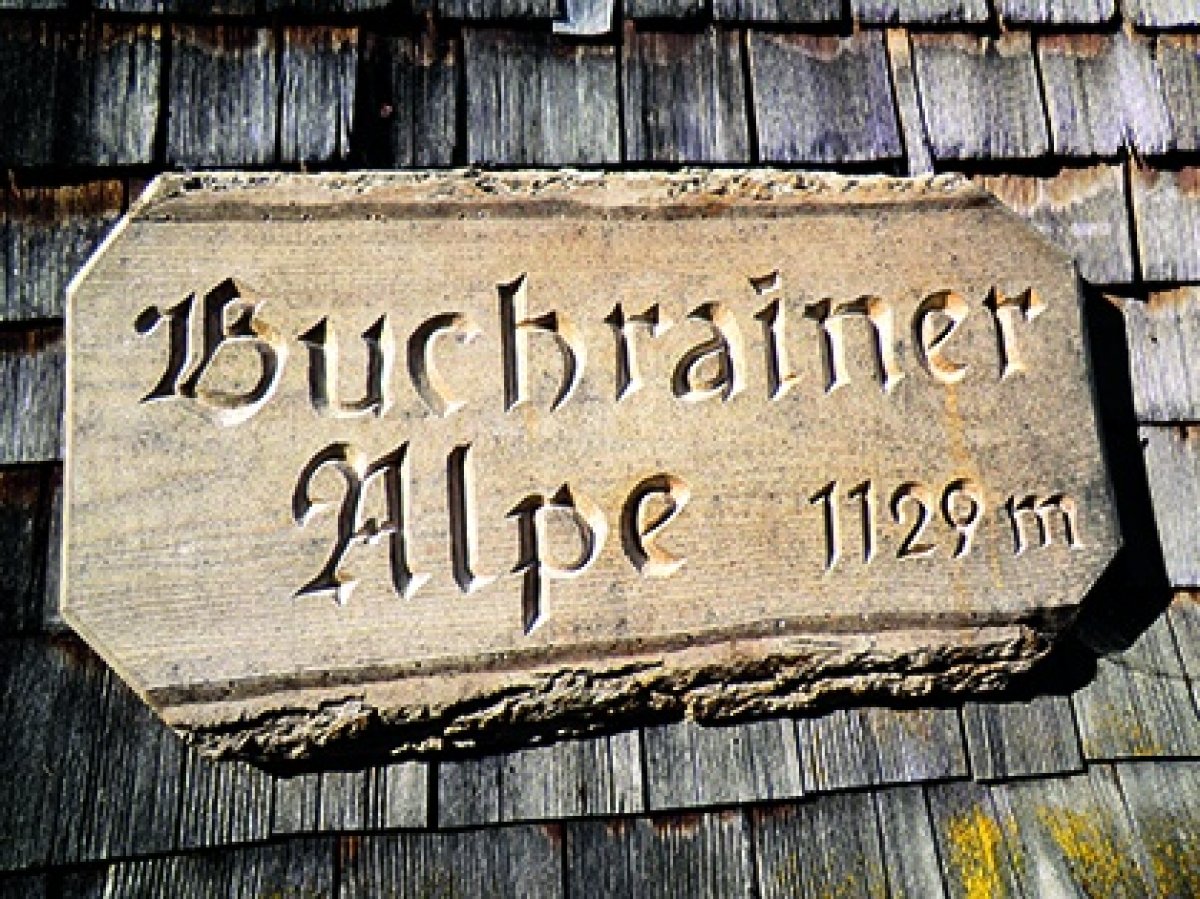 Buchrainer
Alpe 1129 m